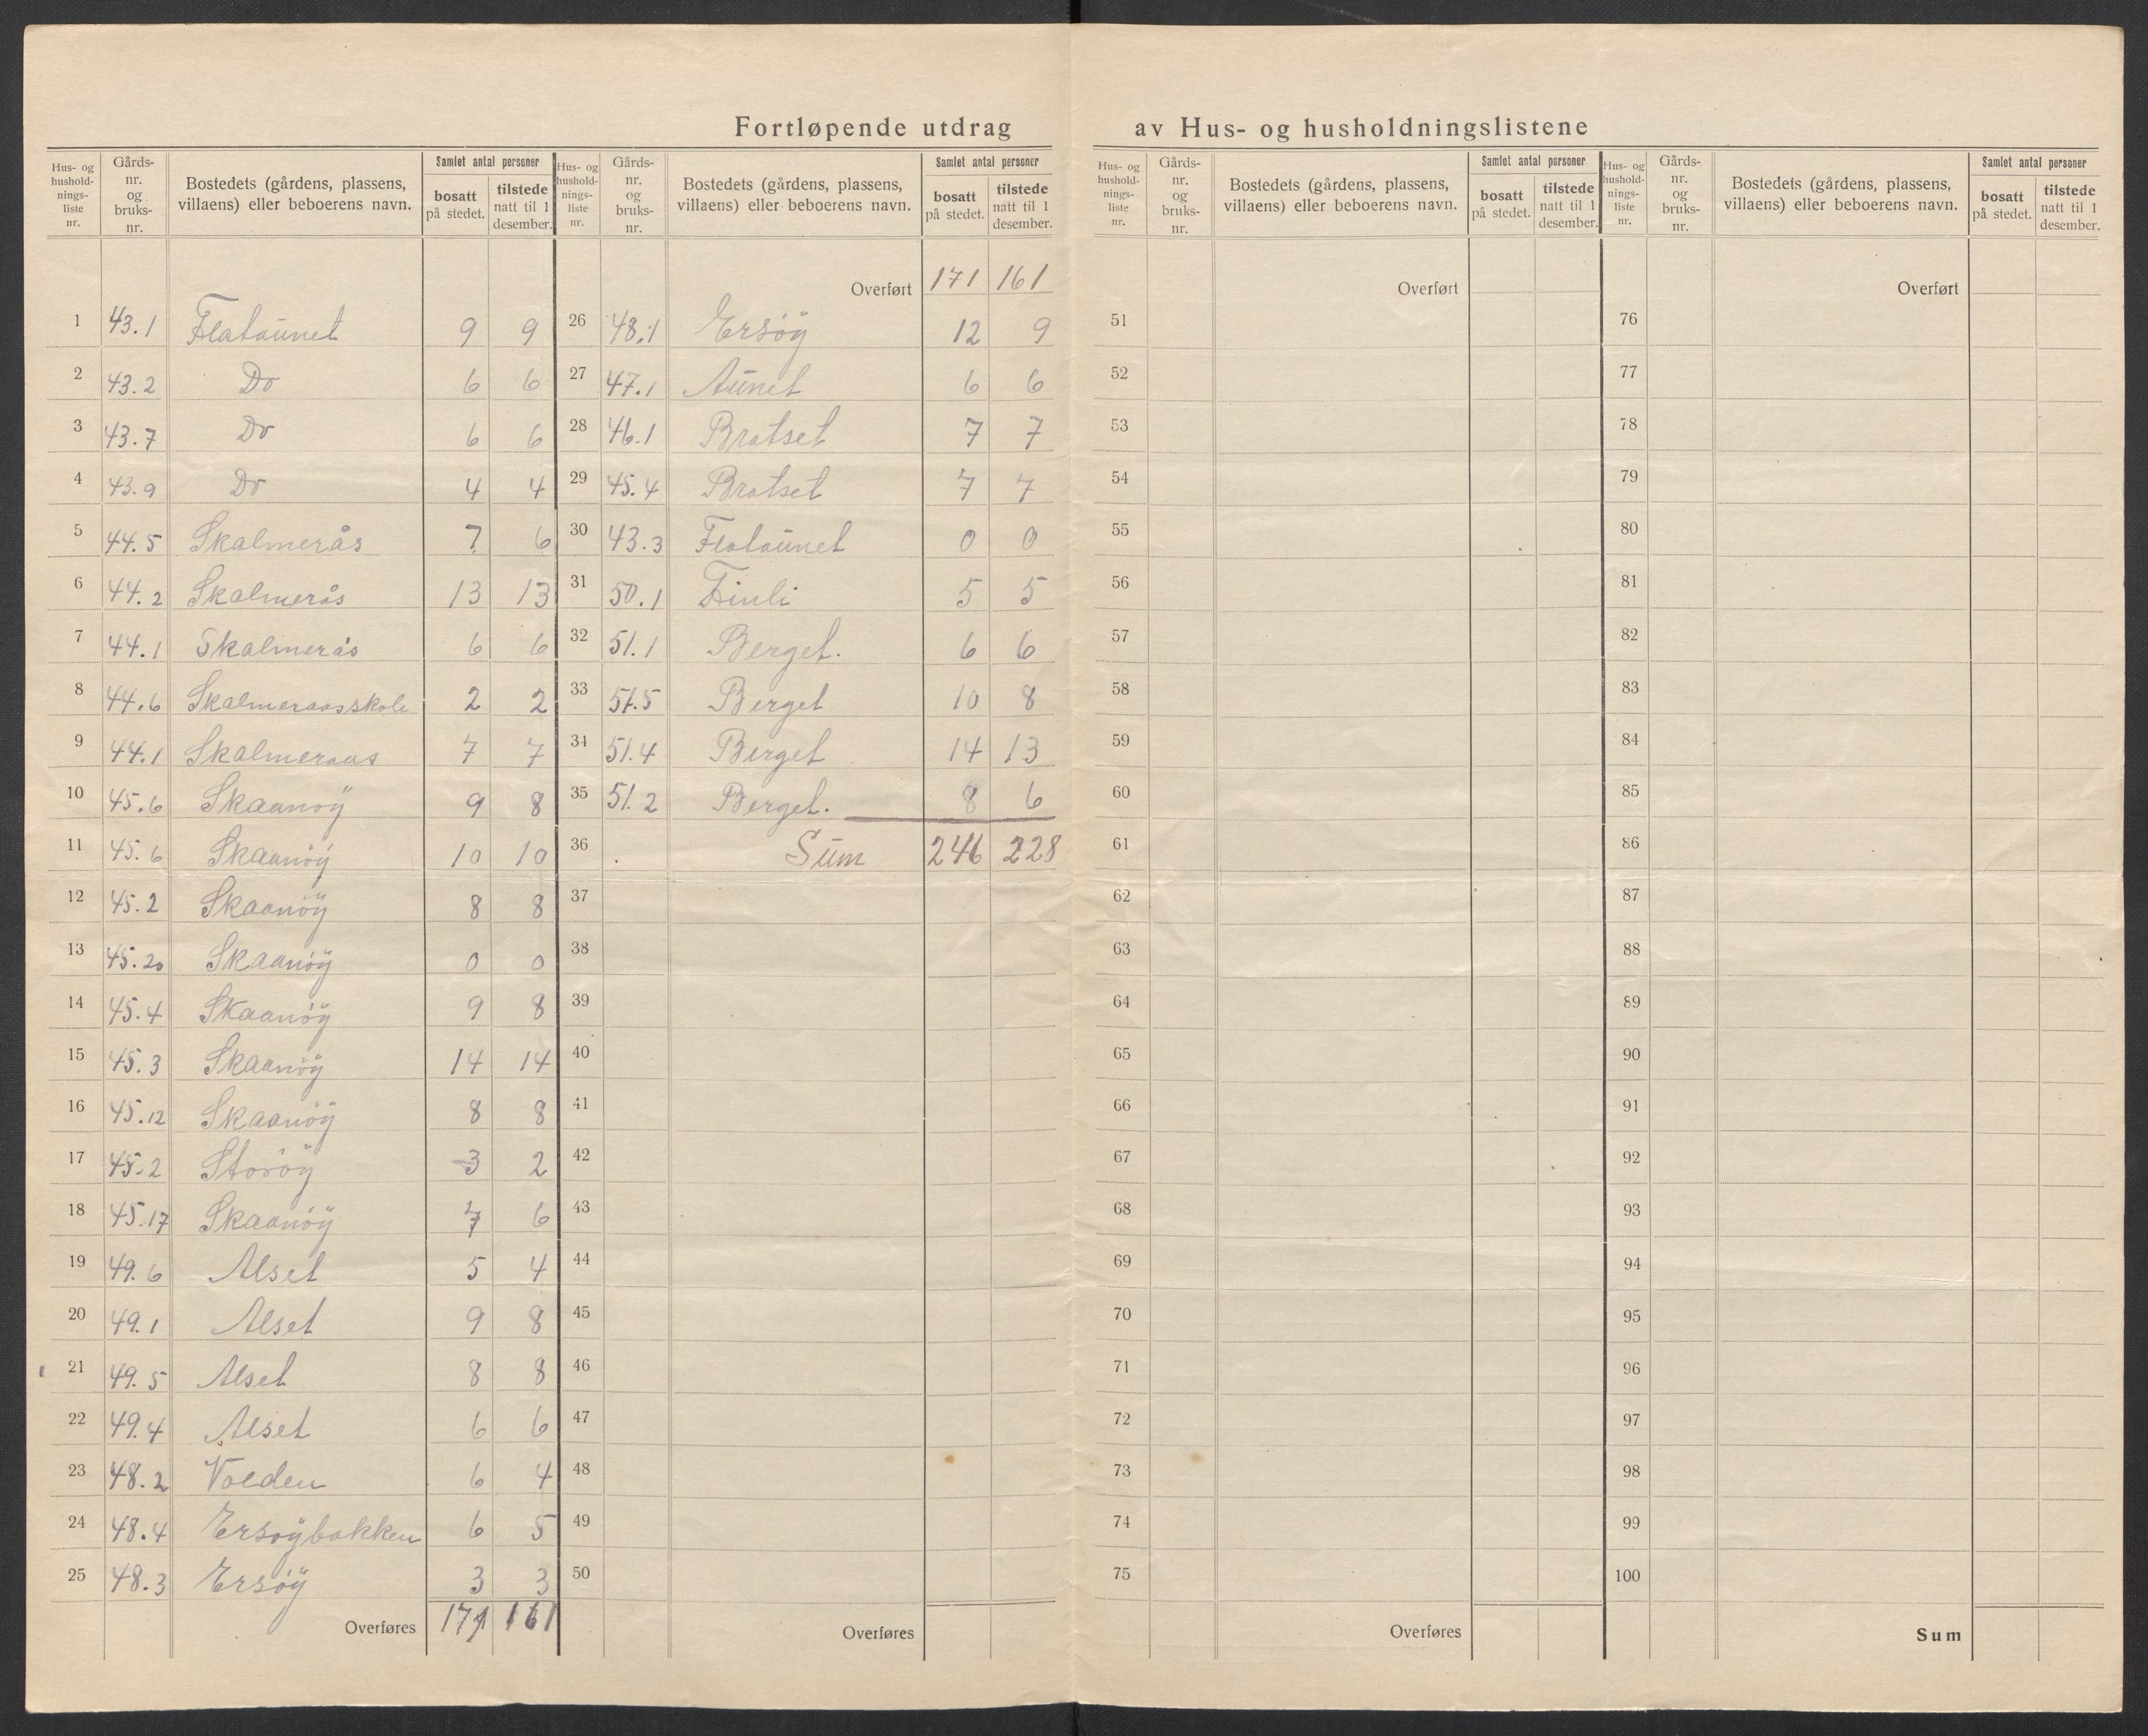 Fortløpende utdrag av Hus- og husholdningslistene
Hus- og husholdnings-liste nr. | Gårds-nr. og bruks-nr. | Bostedets (gårdens, plassens, villaens) eller beboerens navn. | Samlet antal personer | bosatt på stedet. | tilstede natt til 1 desember.
1 43.1 Flataunet 9 9
2 43.2 Do 6 6
3 43.7 Do 6 6
4 43.9 Do 4 4
5 44.5 Skalmerås 7 6
6 44.2 Skalmerås 13 13
7 44.1 Skalmerås 6 6
8 44.6 Skalmeraasskole 2 2
9 44.1 Skalmeraas 7 7
10 45.6 Skaanöy 9 8
11 45.6 Skaanöy 10 10
12 45.2 Skaanöy 8 8
13 45.20 Skaanöy 0 0
14 45.4 Skaanöy 9 8
15 45.3 Skaanöy 14 14
16 45.12 Skaanöy 8 8
17 45.2 Storöy 3 2
18 45.17 Skaanöy 7 6
19 49.6 Alset 5 4
20 49.1 Alset 9 8
21 49.5 Alset 8 8
22 49.4 Alset 6 6
23 48.2 Volden 6 4
24 48.4 Ersöybakken 6 5
25 48.3 Ersöy 3 3
Overføres 171 161
Hus- og husholdnings-liste nr. | Gårds-nr. og bruks-nr. | Bostedets (gårdens, plassens, villaens) eller beboerens navn. | Samlet antal personer | bosatt på stedet. | tilstede natt til 1 desember.
Overført 171 161
26 48.1 Ersöy 12 9
27 47.1 Aunet 6 6
28 46.1 Bratset 7 7
29 45.4 Bratset 7 7
30 43.3 Flataunet 0 0
31 50.1 Finli 5 5
32 51.1 Berget. 6 6
33 51.5 Berget 10 8
34 51.4 Berget 14 13
35 51.2 Berget. 8 6
36 Sum 246 228
37
38
39
40
41
42
43
44
45
46
47
48
49
50
Overføres
Hus- og husholdnings-liste nr. | Gårds-nr. og bruks-nr. | Bostedets (gårdens, plassens, villaens) eller beboerens navn. | Samlet antal personer | bosatt på stedet. | tilstede natt til 1 desember.
Overført
51
52
53
54
55
56
57
58
59
60
61
62
63
64
65
66
67
68
69
70
71
72
73
74
75
Overføres
Hus- og husholdnings-liste nr. | Gårds-nr. og bruks-nr. | Bostedets (gårdens, plassens, villaens) eller beboerens navn. | Samlet antal personer | bosatt på stedet. | tilstede natt til 1 desember.
Overført
76
77
78
79
80
81
82
83
84
85
86
87
88
89
90
91
92
93
94
95
96
97
98
99
100
Sum